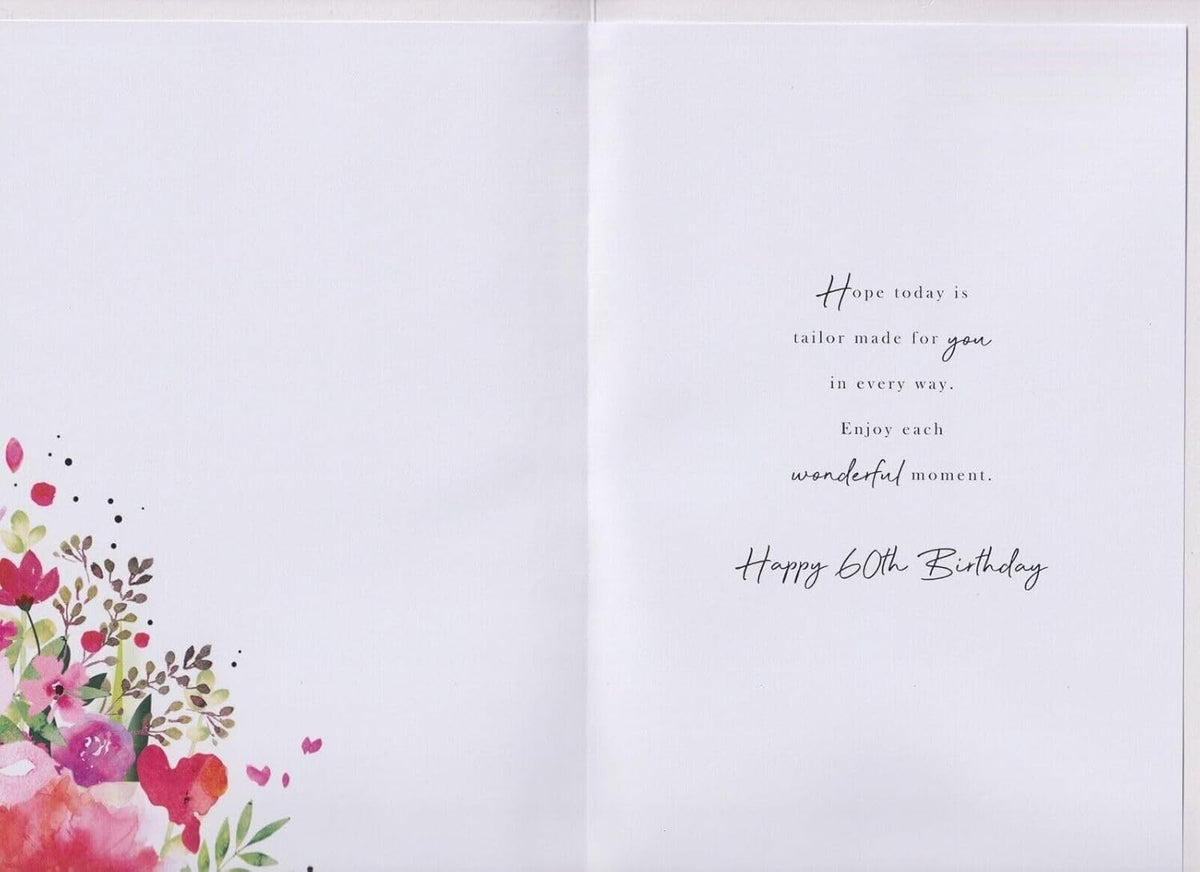 Hope today is
tailor made for you
in every way.
Enjoy each
wonderful moment.
Happy 60th Birthday